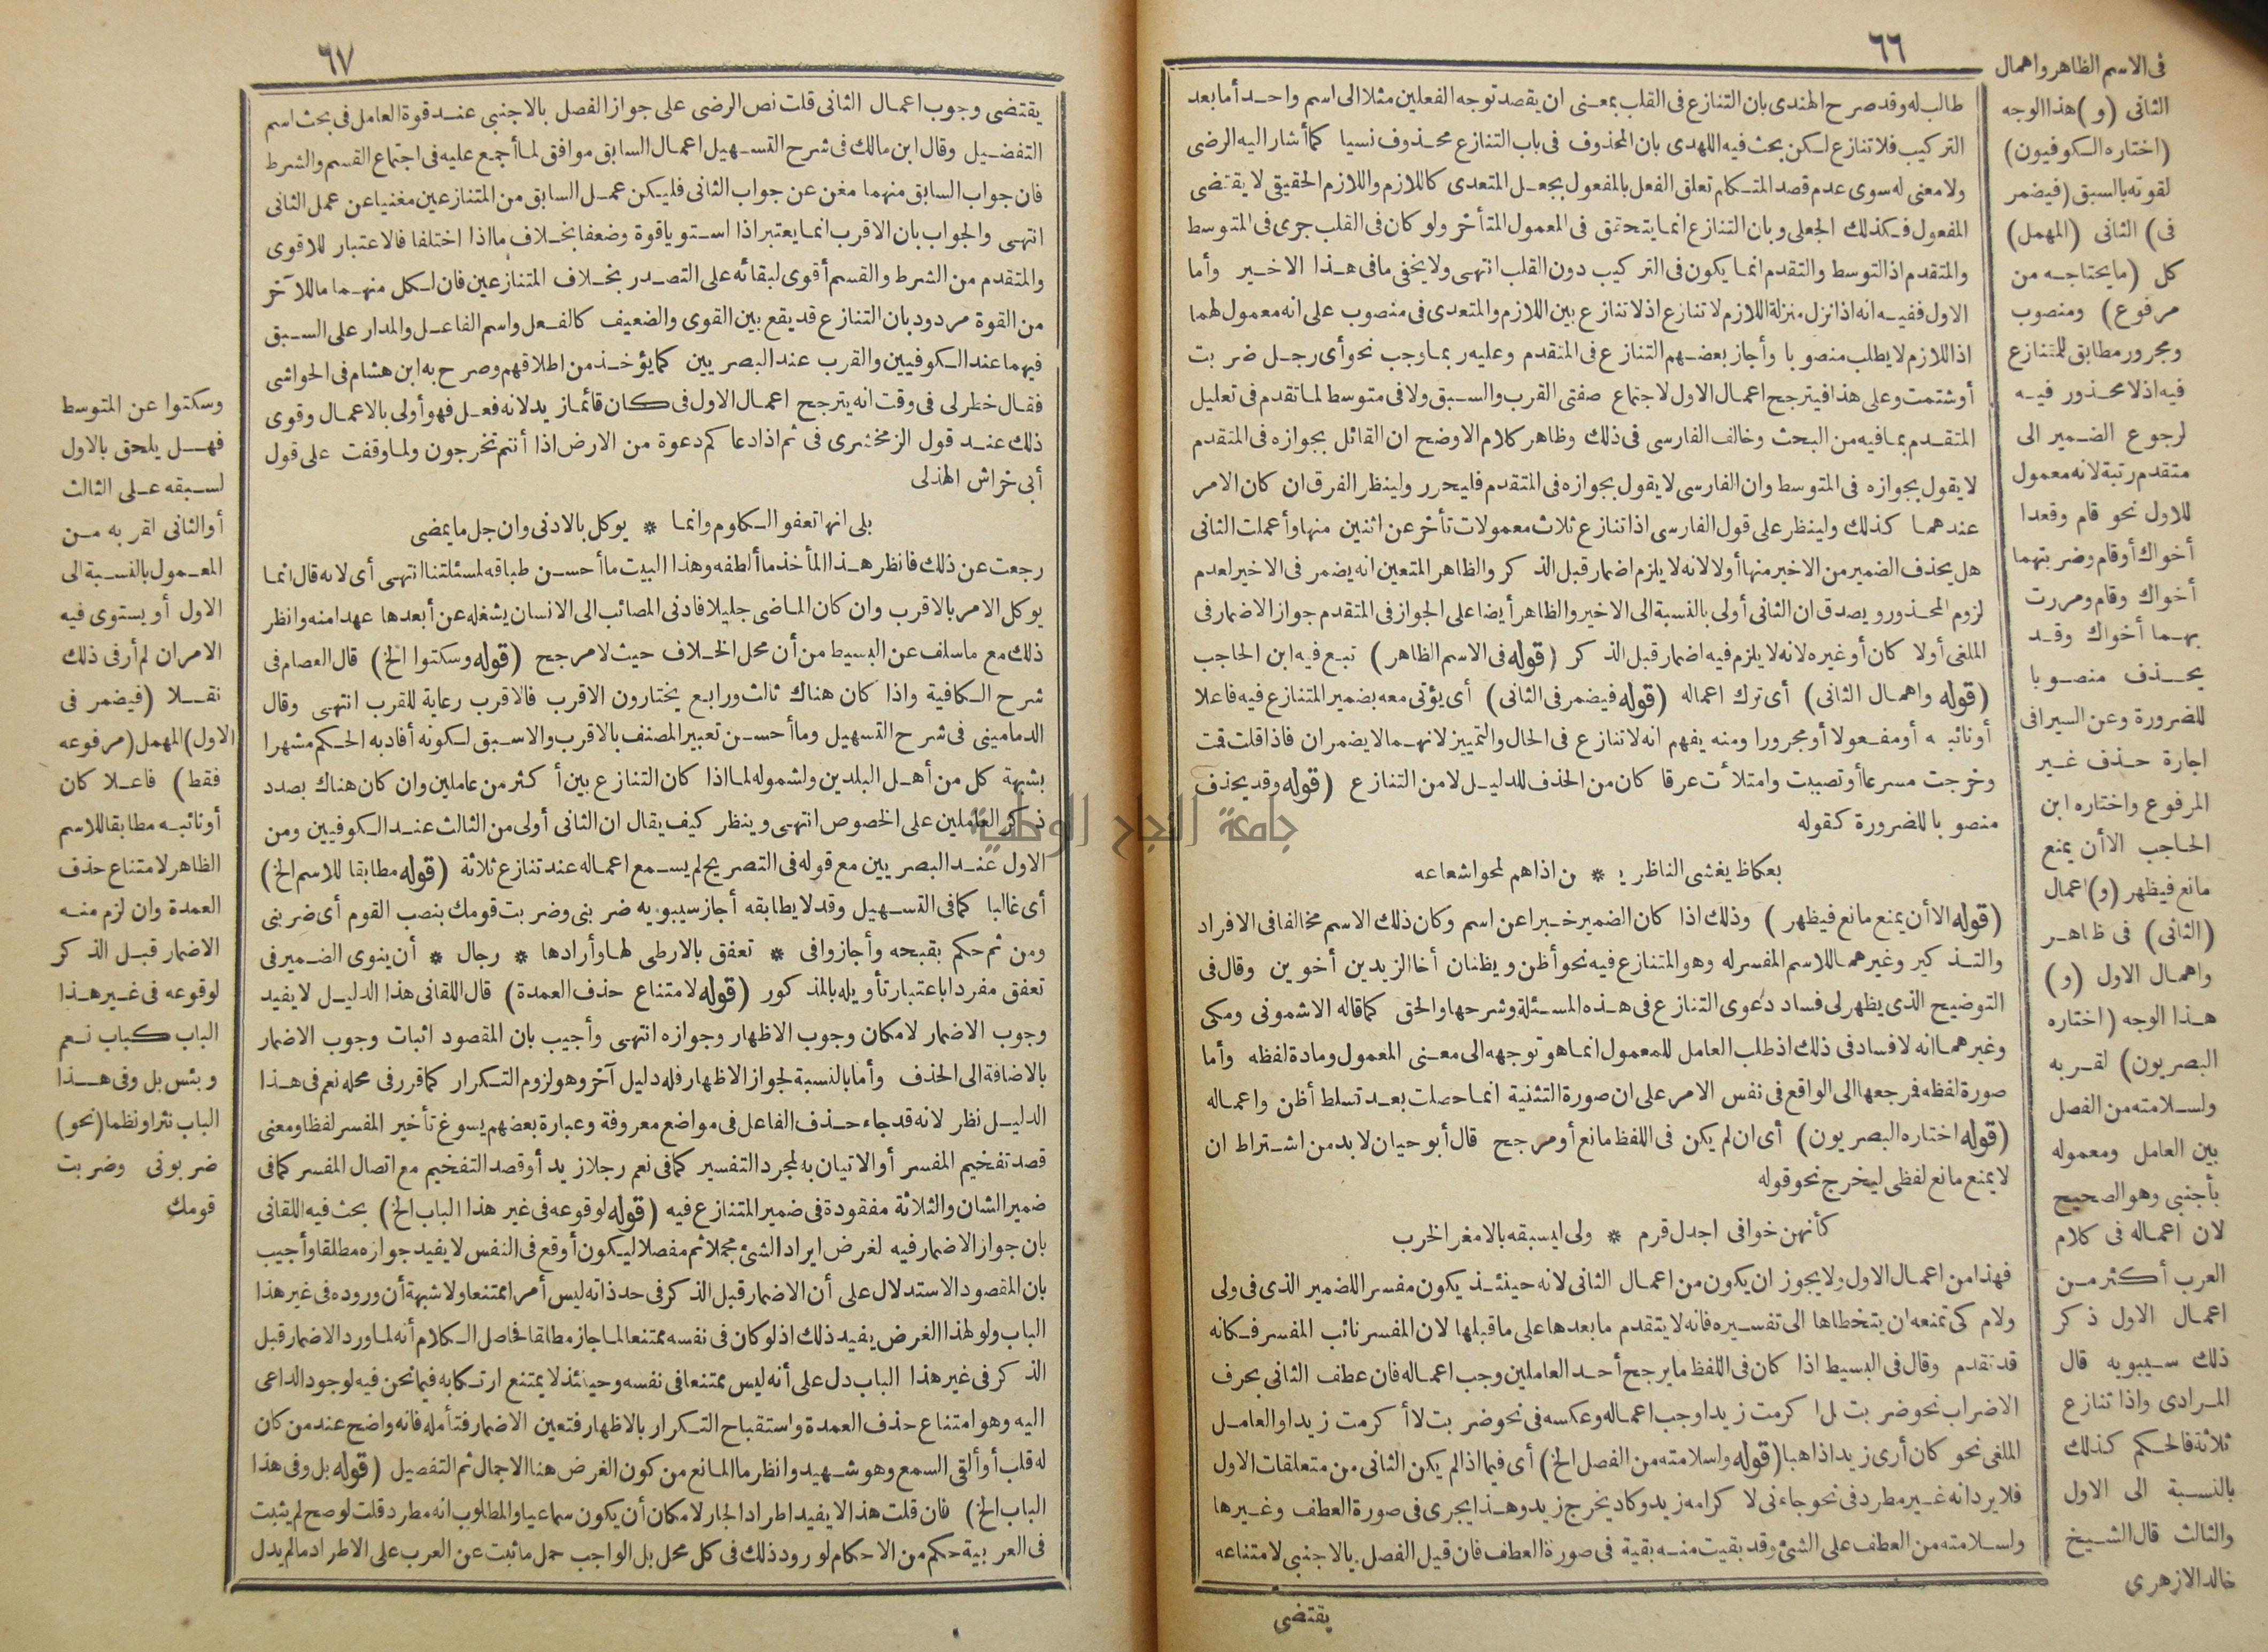 ٦٦
طالب له وقد صرح الهندى بان التنازع فى القلب بمعنى ان يقصد توجه الفعلين مثلا الى اسم واحد أما بعد
التركيب فلا تنازع لكن بحث فيه اللهدى بان المحذوف فى باب التنازع محذوف نسيا كما أشار اليه الرضى
ولا معنى له سوى عدم قصد المتكلم تعلق الفعل بالمفعول بجعل المتعدى كاللازم واللازم الحقيقى لا يقتضى
المفعول فكذلك الجعلى وبان التنازع انما يتحقق فى المعمول المتأخر ولو كان فى القلب جرى فى المتوسط
والمتقدم اذ التوسط والتقدم انما يكون فى التركيب دون القلب انتهى ولا يخفى ما فى هذا الاخير وأما
الاول ففيه انه اذا نزل منزلة اللازم لا تنازع اذ لا تنازع بين اللازم والمتعدى فى منصوب على انه معمول لهما
اذ اللازم لا يطلب منصوبا وأجاز بعضهم التنازع فى المتقدم وعليه ربما وجب نحو أى رجل ضربت
أو شتمت وعلى هذا فيترجح اعمال الاول لاجتماع صفتى القرب والسبق ولا فى متوسط لما تقدم فى تعليل
المتقدم بما فيه من البحث وخالف الفارسى فى ذلك وظاهر كلام الاوضح ان القائل بجوازه فى المتقدم
لا يقول بجوازه فى المتوسط وان الفارسى لا يقول بجوازه فى المتقدم فليحرر ولينظر الفرق ان كان الامر
عندهما كذلك ولينظر على قول الفارسى اذا تنازع ثلاث معمولات تأخر عن اثنين منها وأعملت الثانى
هل يحذف الضمير من الاخير منها أولا لانه لا يلزم اضمار قبل الذكر والظاهر المتعين انه يضمر فى الاخير لعدم
لزوم المحذور ويصدق ان الثانى أولى بالنسبة الى الاخير والظاهر أيضا على الجواز فى المتقدم جواز الاضمار فى
الملغى أولا كان أو غيره لانه لا يلزم فيه اضمار قبل الذكر (قوله فى الاسم الظاهر) تبع فيه ابن الحاجب
(قوله واهمال الثانى) أى ترك اعماله (قوله فيضمر فى الثانى) أى يؤتى معه بضمير المتنازع فيه فاعلا
أو نائبه أو مفعولا أو مجرورا ومنه يفهم انه لا تنازع فى الحال والتمييز لانهما لا يضمران فاذا قلت قمت
وخرجت مسرعا أو تصببت وامتلأت عرقا كان من الحذف للدليل لا من التنازع (قوله وقد يحذف
منصوبا للضرورة كقوله
بعكاظ يغشى الناظري * ن اذا هم لمحوا شعاعه
(قوله الا أن يمنع مانع فيظهر) وذلك اذا كان الضمير خبرا عن اسم وكان ذلك الاسم مخالفا فى الافراد
والتذكير وغيرهما للاسم المفسر له وهو المتنازع فيه نحو أظن ويظنان أخا الزيدين أخوين وقال فى
التوضيح الذى يظهر لى فساد دعوى التنازع فى هذه المسئلة وشرحها والحق كما قاله الاشمونى ومكى
وغيرهما انه لا فساد فى ذلك اذ طلب العامل للمعمول انما هو توجهه الى معنى المعمول ومادة لفظه وأما
صورة لفظه فمرجعها الى الواقع فى نفس الامر على ان صورة التثنية انما حصلت بعد تسلط أظن واعماله
(قوله اختاره البصريون) أى ان لم يكن فى اللفظ مانع أو مرجح قال أبو حيان لا بد من اشتراط ان
لا يمنع مانع لفظى ليخرج نحو قوله
كأنهن خوافى اجدل قرم * ولى ليسبقه بالامغر الخرب
فهذا من اعمال الاول ولا يجوز ان يكون من اعمال الثانى لانه حينئذ يكون مفسرا للضمير الذى فى ولى
ولام كى تمنعه ان يتخطاها الى تفسيره فانه لا يتقدم ما بعدها على ما قبلها لان المفسر نائب المفسر فكانه
قد تقدم وقال فى البسيط اذا كان فى اللفظ ما يرجح أحد العاملين وجب اعماله فان عطف الثانى بحرف
الاضراب نحو ضربت بل اكرمت زيدا وجب اعماله وعكسه فى نحو ضربت لا أكرمت زيدا والعامل
الملغى نحو كان أرى زيدا ذاهبا (قوله ولسلامته من الفصل الخ) أى فيما اذا لم يكن الثانى من متعلقات الاول
فلا يرد انه غير مطرد فى نحو جاءنى لا كرامه زيد وكاد يخرج زيد وهذا يجرى فى صورة العطف وغيرها
ولسلامته من العطف على الشئ وقد بقيت منه بقية فى صورة العطف فان قيل الفصل بالاجنبى لامتناعه
يقتضى
فى الاسم الظاهر واهمال
الثانى (و) هذا الوجه
(اختاره الكوفيون)
لقوته بالسبق (فيضمر
فى) الثانى (المهمل)
كل (ما يحتاجه من
مرفوع) ومنصوب
ومجرور مطابق للمتنازع
فيه اذ لا محذور فيه
لرجوع الضمير الى
متقدم رتبة لانه معمول
للاول نحو قام وقعدا
أخواك أو قام وضربتهما
أخواك وقام ومررت
بهما أخواك وقد
يحذف منصوبا
للضرورة وعن السيرافى
اجازة حذف غير
المرفوع واختاره ابن
الحاجب الا أن يمنع
مانع فيظهر (و) اعمال
(الثانى) فى ظاهر
واهمال الاول (و)
هذا الوجه (اختاره
البصريون) لقربه
ولسلامته من الفصل
بين العامل ومعموله
بأجنبى وهو الصحيح
لان اعماله فى كلام
العرب أكثر من
اعمال الاول ذكر
ذلك سيبويه قال
المرادى واذا تنازع
ثلاثة فالحكم كذلك
بالنسبة الى الاول
والثالث قال الشيخ
خالد الازهرى
٦٧
يقتضى وجوب اعمال الثانى قلت نص الرضى على جواز الفصل بالاجنبى عند قوة العامل فى بحث اسم
التفضيل وقال ابن مالك فى شرح التسهيل اعمال السابق موافق لما أجمع عليه فى اجتماع القسم والشرط
فان جواب السابق منهما مغن عن جواب الثانى فليكن عمل السابق من المتنازعين مغنيا عن عمل الثانى
انتهى والجواب بان الاقرب انما يعتبر اذا استويا قوة وضعفا بخلاف ما اذا اختلفا فالاعتبار للاقوى
والمتقدم من الشرط والقسم أقوى لبقائه على التصدر بخلاف المتنازعين فان لكل منهما ما للآخر
من القوة مردود بان التنازع قد يقع بين القوى والضعيف كالفعل واسم الفاعل والمدار على السبق
فيهما عند الكوفيين والقرب عند البصريين كما يؤخذ من اطلاقهم وصرح به ابن هشام فى الحواشى
فقال خطر لى فى وقت انه يترجح اعمال الاول فى كان قائما زيد لانه فعل فهو أولى بالاعمال وقوى
ذلك عند قول الزمخشرى فى ثم اذا دعاكم دعوة من الارض اذا أنتم تخرجون ولما وقفت على قول
أبى خراش الهذلى
بلى انها تعفو الكلوم وانما * يوكل بالادنى وان جل ما يمضى
رجعت عن ذلك فانظر هذا المأخذ ما ألطفه وهذا البيت ما أحسن طباقه لمسئلتنا انتهى أى لانه قال انما
يوكل الامر بالاقرب وان كان الماضى جليلا فادنى المصائب الى الانسان يشغله عن أبعدها عهدا منه وانظر
ذلك مع ما سلف عن البسيط من أن محل الخلاف حيث لا مرجح (قوله وسكتوا الخ) قال العصام فى
شرح الكافية واذا كان هناك ثالث ورابع يختارون الاقرب فالاقرب رعاية للقرب انتهى وقال
الدمامينى فى شرح التسهيل وما أحسن تعبير المصنف بالاقرب والاسبق لكونه أفاد به الحكم مشهرا
بشبهة كل من أهل البلدين ولشموله لما اذا كان التنازع بين أكثر من عاملين وان كان هناك بصدد
ذكر العاملين على الخصوص انتهى وينظر كيف يقال ان الثانى أولى من الثالث عند الكوفيين ومن
الاول عند البصريين مع قوله فى التصريح لم يسمع اعماله عند تنازع ثلاثة (قوله مطابقا للاسم الخ)
أى غالبا كما فى التسهيل وقد لا يطابقه أجاز سيبويه ضربنى وضربت قومك بنصب القوم أى ضربنى
ومن ثم حكم بقبحه وأجازوا فى * تعفق بالارطى لها وأرادها * رجال * أن ينوى الضمير فى
تعفق مفردا باعتبار تأويله بالمذكور (قوله لامتناع حذف العمدة) قال اللقانى هذا الدليل لا يفيد
وجوب الاضمار لامكان وجوب الاظهار وجوازه انتهى وأجيب بان المقصود اثبات وجوب الاضمار
بالاضافة الى الحذف وأما بالنسبة لجواز الاظهار فله دليل آخر وهو لزوم التكرار كما قرر فى محله نعم فى هذا
الدليل نظر لانه قد جاء حذف الفاعل فى مواضع معروفة وعبارة بعضهم يسوغ تأخير المفسر لفظا ومعنى
قصد تفخيم المفسر أو الاتيان به لمجرد التفسير كما فى نعم رجلا زيد أو قصد التفخيم مع اتصال المفسر كما فى
ضمير الشان والثلاثة مفقودة فى ضمير المتنازع فيه (قوله لوقوعه فى غير هذا الباب الخ) بحث فيه اللقانى
بان جواز الاضمار فيه لغرض ايراد الشئ مجملا ثم مفصلا ليكون أوقع فى النفس لا يفيد جوازه مطلقا وأجيب
بان المقصود الاستدلال على أن الاضمار قبل الذكر فى حد ذاته ليس أمرا ممتنعا ولا شبهة أن وروده فى غير هذا
الباب ولو لهذا الغرض يفيد ذلك اذ لو كان فى نفسه ممتنعا لما جاز مطلقا فحاصل الكلام أنه لما ورد الاضمار قبل
الذكر فى غير هذا الباب دل على أنه ليس ممتنعا فى نفسه وحينئذ لا يمتنع ارتكابه فيما نحن فيه لوجود الداعى
اليه وهو امتناع حذف العمدة واستقباح التكرار بالاظهار فتعين الاضمار فتأمله فانه واضح عند من كان
له قلب أو ألقى السمع وهو شهيد وانظر ما المانع من كون الغرض هنا الاجمال ثم التفصيل (قوله بل وفى هذا
الباب الخ) فان قلت هذا لا يفيد اطراد الجار لامكان أن يكون سماعيا والمطلوب انه مطرد قلت لو صح لم يثبت
فى العربية حكم من الاحكام لورود ذلك فى كل محل بل الواجب حمل ما ثبت عن العرب على الاطراد ما لم يدل
وسكتوا عن المتوسط
فهل يلحق بالاول
لسبقه على الثالث
أو الثانى لقربه من
المعمول بالنسبة الى
الاول أو يستوى فيه
الامران لم أر فى ذلك
نقلا (فيضمر فى
الاول) المهمل (مرفوعه
فقط) فاعلا كان
أو نائبه مطابقا للاسم
الظاهر لامتناع حذف
العمدة وان لزم منه
الاضمار قبل الذكر
لوقوعه فى غير هذا
الباب كباب نعم
وبئس بل وفى هذا
الباب نثرا ونظما (نحو)
ضربونى وضربت
قومك
جامعة النجاح الوطنية